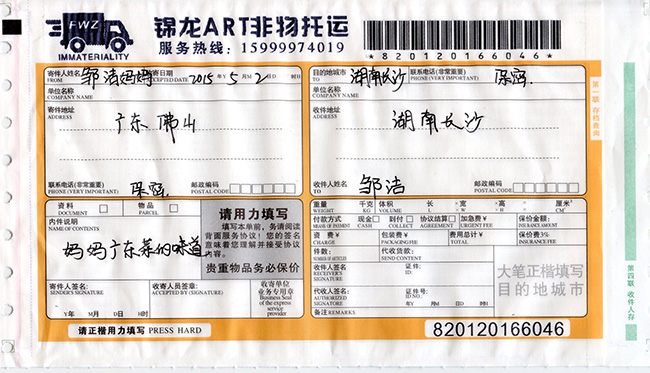 FWZ
IMMATERIALITY
锦龙ART非物托运
服务热线：15999974019
820120166046
寄件人姓名 FROM 邹洁妈妈 寄件日期 ACCEPTED DATE 2015 年Y 5 月M 2 日D 时H
单位名称 COMPANY NAME
寄件地址 ADDRESS
广东佛山
联系电话(非常重要) PHONE (VERY IMPORTANT) 保密 邮政编码 POSTAL CODE
目的地城市 TO 湖南长沙 联系电话(非常重要) PHONE(VERY IMPORTANT) 保密
单位名称 COMPANY NAME
收件地址 ADDRESS
湖南长沙
收件人姓名 邹洁 邮政编码 POSTAL CODE
第一联 存档查询
资料 DOCUMENT 物品 PARCEL
内件说明 NAME OF CONTENTS
妈妈广东菜的味道
请用力填写
填写本单前，务请阅读
背面服务协议！您的签名
意味着您理解并接受协议
内容。
贵重物品务必保价
寄件人签名: SENDER'S SIGNATURE
收寄人员签章: ACCEPTED BY (SIGNATURE)
收寄单位
业务专用章
Business Seal
of the express
service
provider
Y年 M月 D日 H时
请正楷用力填写 PRESS HARD
重量 WEIGHT 千克 KG 体积 VOLUME 长 L ×宽 W ×高 H = 厘米³ CM³
付款方式 MEANS OF PAYMENT 现金 CASH 到付 COLLECT 协议结算 AGREEMENT 加急费 URGENT FEE ¥ 保价金额 INSURED AMOUNT
资费 ¥ CHARGE 包装费 ¥ PACKAGING FEE 费用总计 ¥ TOTAL 保价费3% INSURANCE FEE
件数: NUMBER OF ARTICLES 代收货款: SEND CONTENT
收件人签名: RECEIVER'S SIGNATURE 证件: ID
代收人签名: AUTHORIZED SIGNATURE 证件号: ID NO. 年Y 月M 日D 时H
备注 REMARKS
大笔正楷填写
目的地城市
820120166046
第四联 收件人存